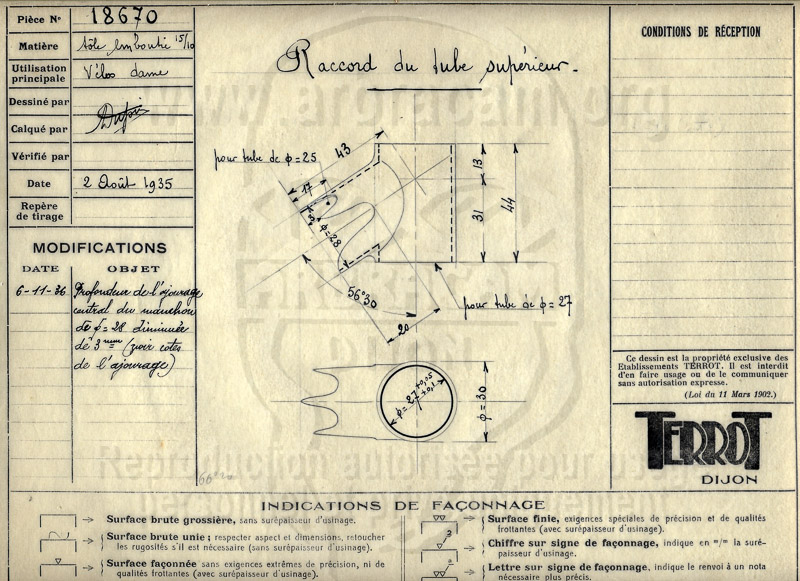 Pièce N° 18670
Matière tôle emboutie 15/10
Utilisation
principale Vélos dame
Dessiné par
Calqué par
Vérifié par
Date 2 Août 1935
Repère
de tirage
MODIFICATIONS
DATE OBJET
6-11-36 Profondeur de l'ajourage
central du manchon
de φ=28 diminuée
de 3 mm (voir cotes
de l'ajourage)
Raccord du tube supérieur.
pour tube de φ=25
43
17
φ=28
13
31
44
56°30
20
pour tube de φ=27
φ=27 +0,05
+0,1
φ=30
CONDITIONS DE RÉCEPTION
Ce dessin est la propriété exclusive des
Etablissements TERROT. Il est interdit
d'en faire usage ou de le communiquer
sans autorisation expresse.
(Loi du 11 Mars 1902.)
TERROT
DIJON
www.arqracam.org
Reproduction autorisée pour usage
INDICATIONS DE FAÇONNAGE
Surface brute grossière, sans surépaisseur d'usinage.
Surface brute unie ; respecter aspect et dimensions, retoucher
les rugosités s'il est nécessaire (sans surépaisseur d'usinage).
Surface façonnée sans exigences extrêmes de précision, ni de
qualités frottantes (avec surépaisseur d'usinage).
Surface finie, exigences spéciales de précision et de qualités
frottantes (avec surépaisseur d'usinage).
Chiffre sur signe de façonnage, indique en m/m la suré-
paisseur d'usinage.
Lettre sur signe de façonnage, indique le renvoi à un nota
nécessaire plus précis.